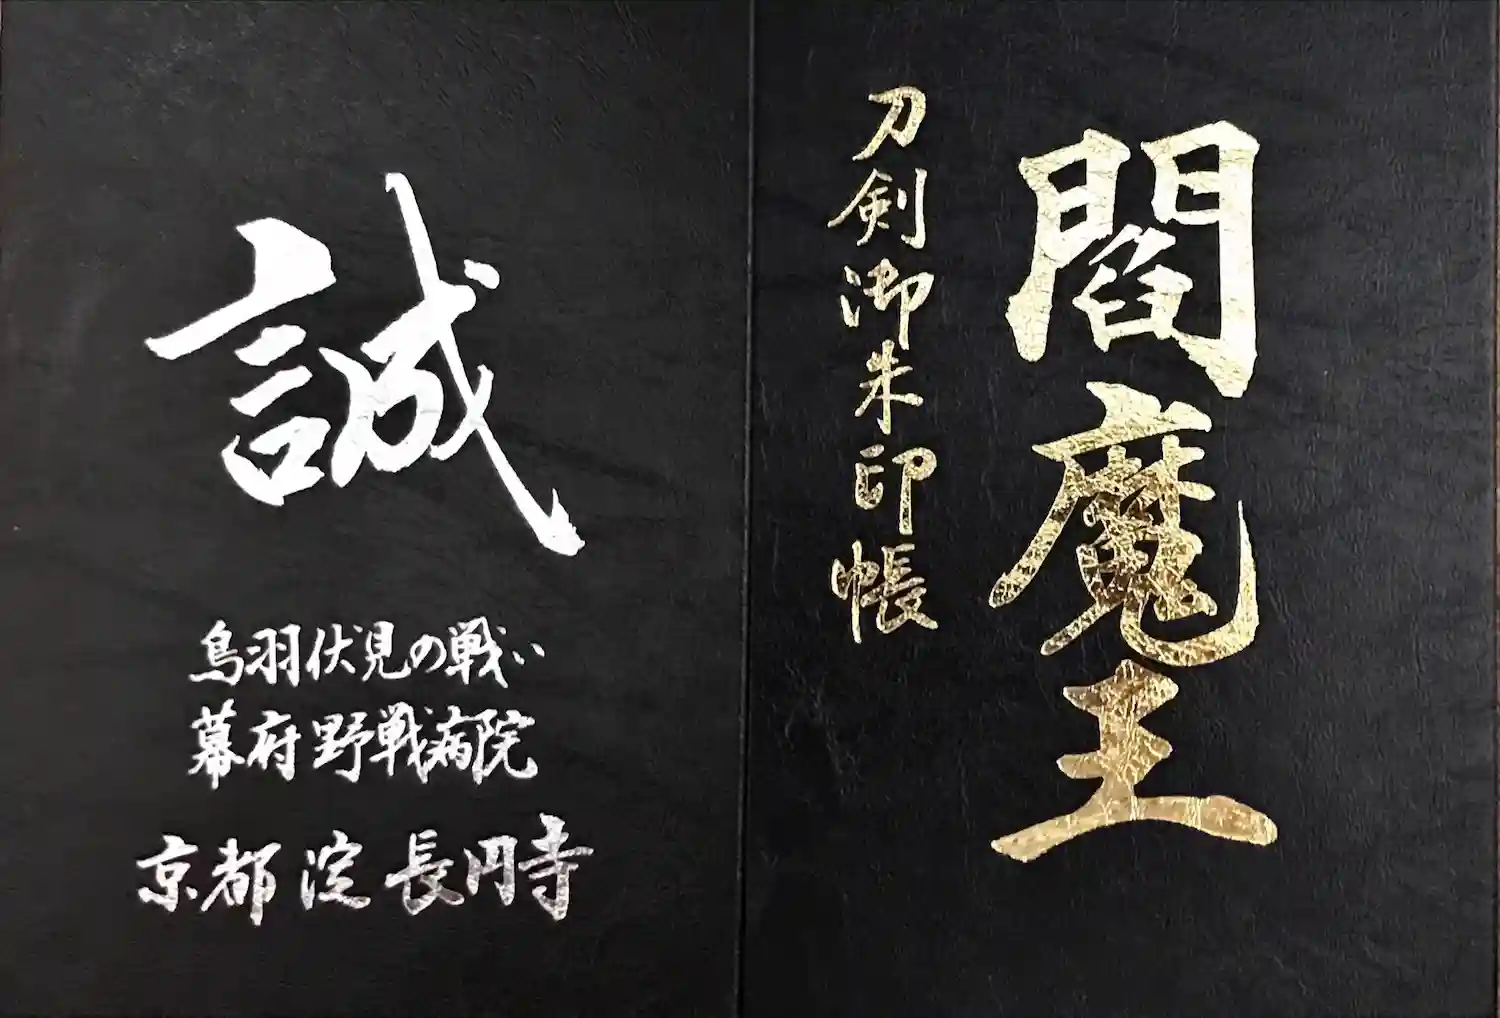 閻魔王
刀剣御朱印帳
誠
鳥羽伏見の戦い
幕府野戦病院
京都 淀 長円寺